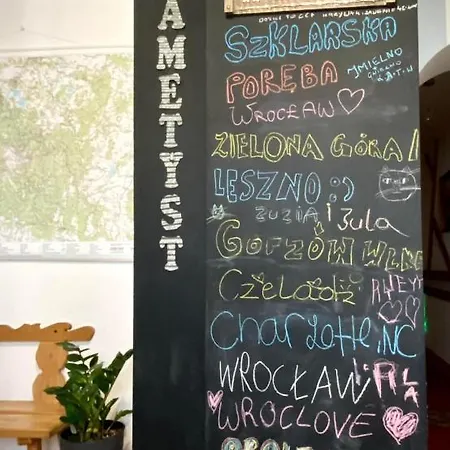 AMETYST
SZKLARSKA
PORĘBA
WROCŁAW
ZIELONA GÓRA!
LESZNO :)
ZUZIA i Jula
GORZÓW WLKP
Czeladź
CharLotte, NC
WROCŁAW
WROCLOVE